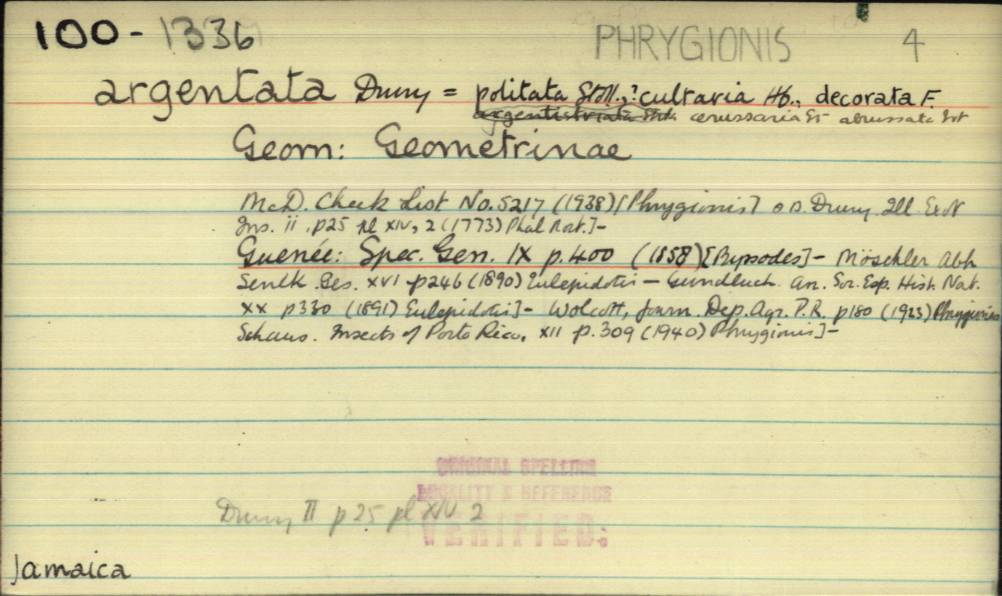 100-1336 PHRYGIONIS 4
argentata Drury = politata Stoll., ?cultaria Hb., decorata F.
argentistriata Strk. cerussaria abrussata
Geom: Geometrinae
McD. Check List No. 5217 (1938) [Phrygionis] o.D. Drury. Ill. Exot
Ins. ii, p25 pl XIV, 2 (1773) Phal Noct.]-
Guenée: Spec. Gen. IX p.400 (1858) [Byssodes]- Möschler Abh
Senck. Ges. XVI p246 (1890) Eulepidotis - Gundlach. An. Soc. Esp. Hist. Nat.
XX p330 (1891) Eulepidotis]- Wolcott, Journ. Dep. Agr. P.R. p180 (1923) Phrygionis
Schaus. Insects of Porto Rico, XII p.309 (1940) Phrygionis]-
ORIGINAL SPELLING
LOCALITY & REFERENCE
Drury II p25 pl XIV. 2
VERIFIED:
Jamaica